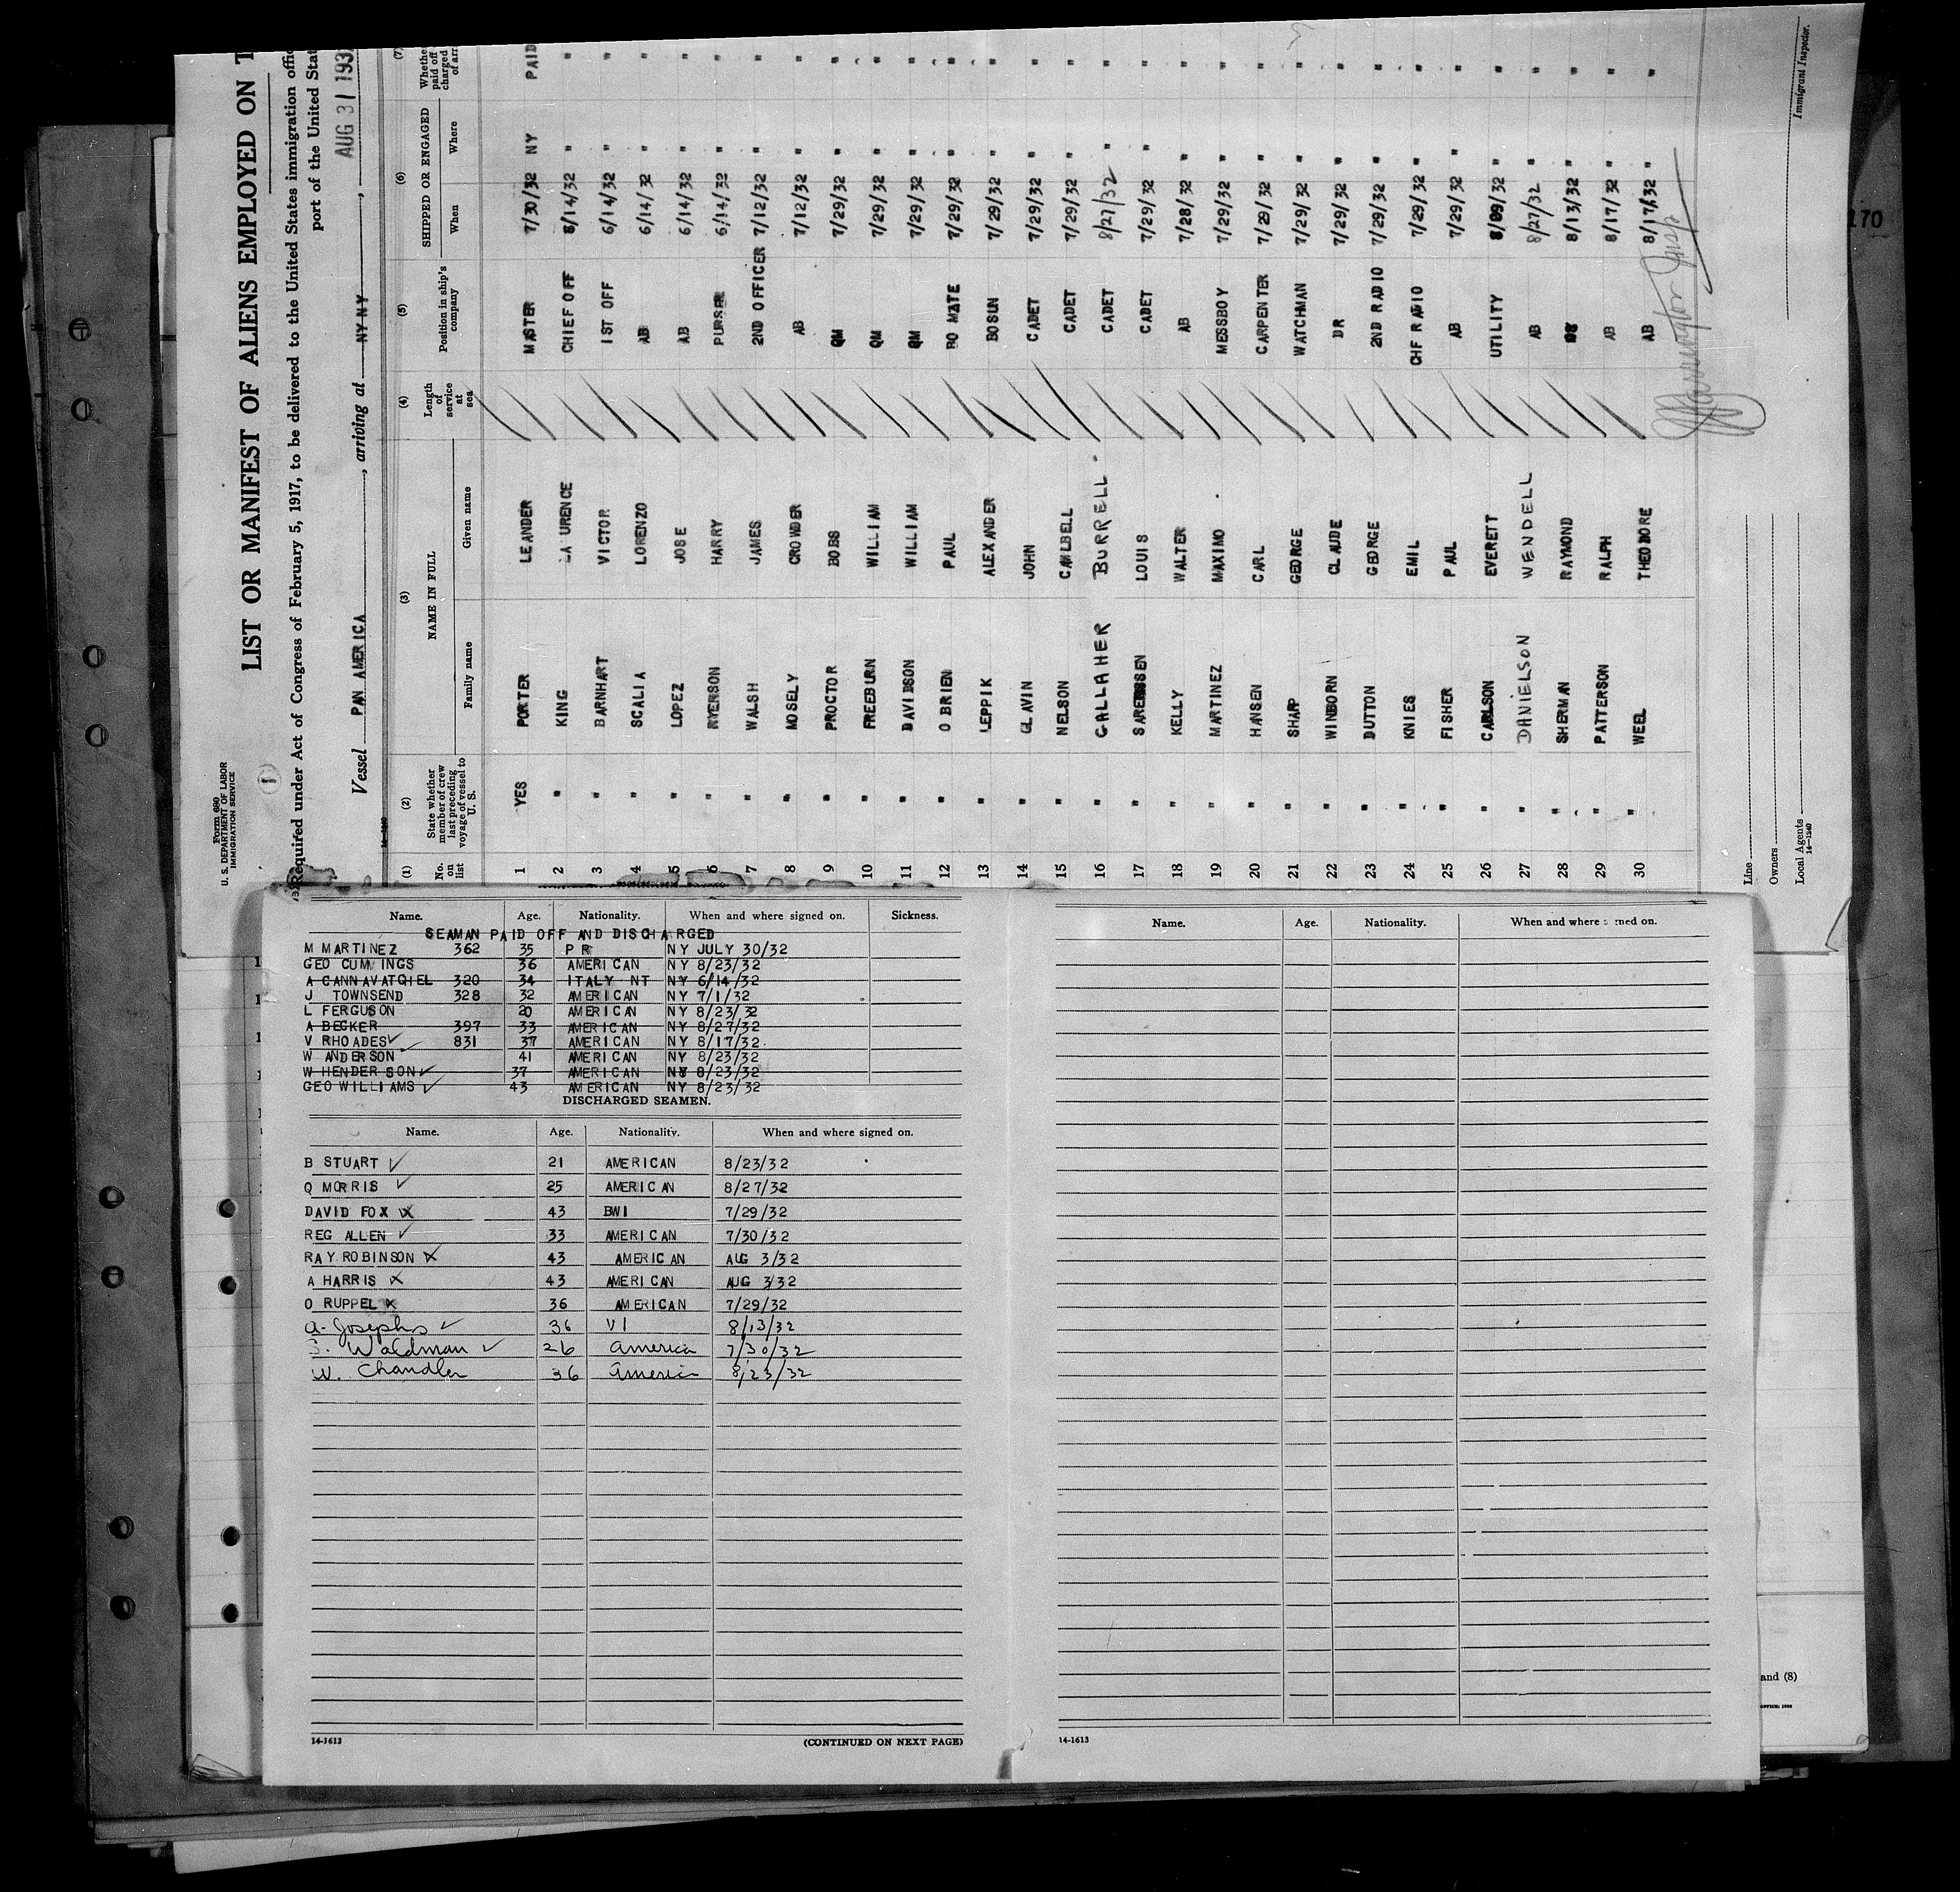 Form 680
U. S. DEPARTMENT OF LABOR
IMMIGRATION SERVICE
LIST OR MANIFEST OF ALIENS EMPLOYED ON T
Required under Act of Congress of February 5, 1917, to be delivered to the United States immigration offic
port of the United Stat
Vessel PAN AMERICA, arriving at NY NY, AUG 31 193
(1) (2) (3) (4) (5) (6) (7)
No. on list
State whether member of crew last preceding voyage of vessel to U. S.
NAME IN FULL
Family name Given name
Length of service at sea
Position in ship's company
SHIPPED OR ENGAGED
When Where
Whether paid off charged of arr
1 YES PORTER LEANDER MASTER 7/30/32 NY PAID
2 " KING LAURENCE CHIEF OFF 6/14/32 " "
3 " BARNHART VICTOR 1ST OFF 6/14/32 " "
4 " SCALIA LORENZO AB 6/14/32 " "
5 " LOPEZ JOSE AB 6/14/32 " "
6 " RYERSON HARRY PURSER 6/14/32 " "
7 " WALSH JAMES 2ND OFFICER 7/12/32 " "
8 " MOSELY CROWDER AB 7/12/32 " "
9 " PROCTOR BOBS QM 7/29/32 " "
10 " FREEBURN WILLIAM QM 7/29/32 " "
11 " DAVIDSON WILLIAM QM 7/29/32 " "
12 " O BRIEN PAUL BO MATE 7/29/32 " "
13 " LEPPIK ALEXANDER BOSUN 7/29/32 " "
14 " GLAVIN JOHN CADET 7/29/32 " "
15 " NELSON CAMLBELL CADET 7/29/32 " "
16 " GALLAHER BURRELL CADET 8/27/32 " "
17 " LOUIS CADET 7/29/32 " "
18 " KELLY WALTER AB 7/28/32 " "
19 " MARTINEZ MAXIMO MESSBOY 7/29/32 " "
20 " HANSEN CARL CARPENTER 7/29/32 " "
21 " SHARP GEORGE WATCHMAN 7/29/32 " "
22 " WINBORN CLAUDE DR 7/29/32 " "
23 " DUTTON GEORGE 2ND RADIO 7/29/32 " "
24 " KNIES EMIL CHF RADIO 7/29/32 " "
25 " FISHER PAUL AB 7/29/32 " "
26 " CARLSON EVERETT UTILITY " "
27 " DANIELSON WENDELL AB 8/27/32 " "
28 " SHERMAN RAYMOND 8/13/32 " "
29 " PATTERSON RALPH AB 8/17/32 " "
30 " WEEL THEODORE AB 8/17/32 " "
Line
Owners
Local Agents
14-1240
Immigrant Inspector.
170
Name. Age. Nationality. When and where signed on. Sickness.
SEAMAN PAID OFF AND DISCHARGED
M MARTINEZ 362 35 P R NY JULY 30/32
GEO CUMMINGS 36 AMERICAN NY 8/23/32
A CANNAVATCHIEL 320 34 ITALY NT NY 6/14/32
J TOWNSEND 328 32 AMERICAN NY 7/1/32
L FERGUSON 20 AMERICAN NY 8/23/32
A BECKER 397 33 AMERICAN NY 8/27/32
V RHOADES 831 37 AMERICAN NY 8/17/32
W ANDERSON 41 AMERICAN NY 8/23/32
W HENDERSON 37 AMERICAN NY 8/23/32
GEO WILLIAMS 43 AMERICAN NY 8/23/32
DISCHARGED SEAMEN.
Name. Age. Nationality. When and where signed on.
B STUART 21 AMERICAN 8/23/32
Q MORRIS 25 AMERICAN 8/27/32
DAVID FOX 43 BWI 7/29/32
REG ALLEN 33 AMERICAN 7/30/32
RAY ROBINSON 43 AMERICAN AUG 3/32
A HARRIS 43 AMERICAN AUG 3/32
O RUPPEL 36 AMERICAN 7/29/32
A. Josephs 36 VI 8/13/32
S. Waldman 26 America 7/30/32
W. Chandler 36 Americ 8/23/32
14-1613 (CONTINUED ON NEXT PAGE)
Name. Age. Nationality. When and where signed on.
14-1613
and (8)